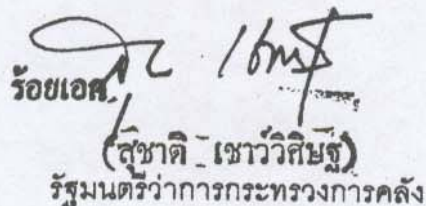 ร้อยเอก
(สุชาติ เชาว์วิศิษฐ)
รัฐมนตรีว่าการกระทรวงการคลัง